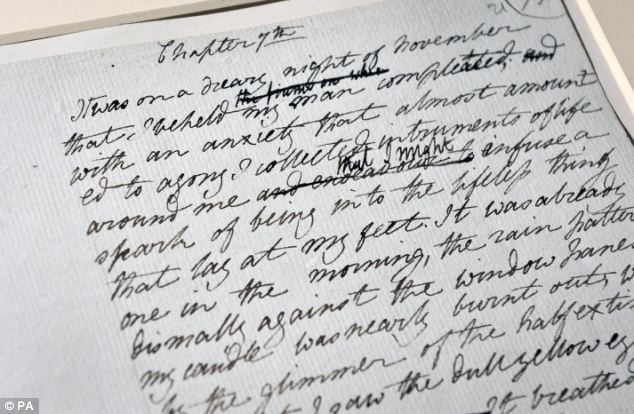 Chapter 7th
It was on a dreary night of November
the frame on whic
that I beheld my man compleated; and
with an anxiety that almost amount
ed to agony I collected instruments of life
that I might
around me and endeavour to infuse a
spark of being into the lifeless thing
that lay at my feet. It was already
one in the morning, the rain patter
dismally against the window panes
my candle was nearly burnt out, w
by the glimmer of the half exti
I saw the dull yellow ey
It breathed
© PA